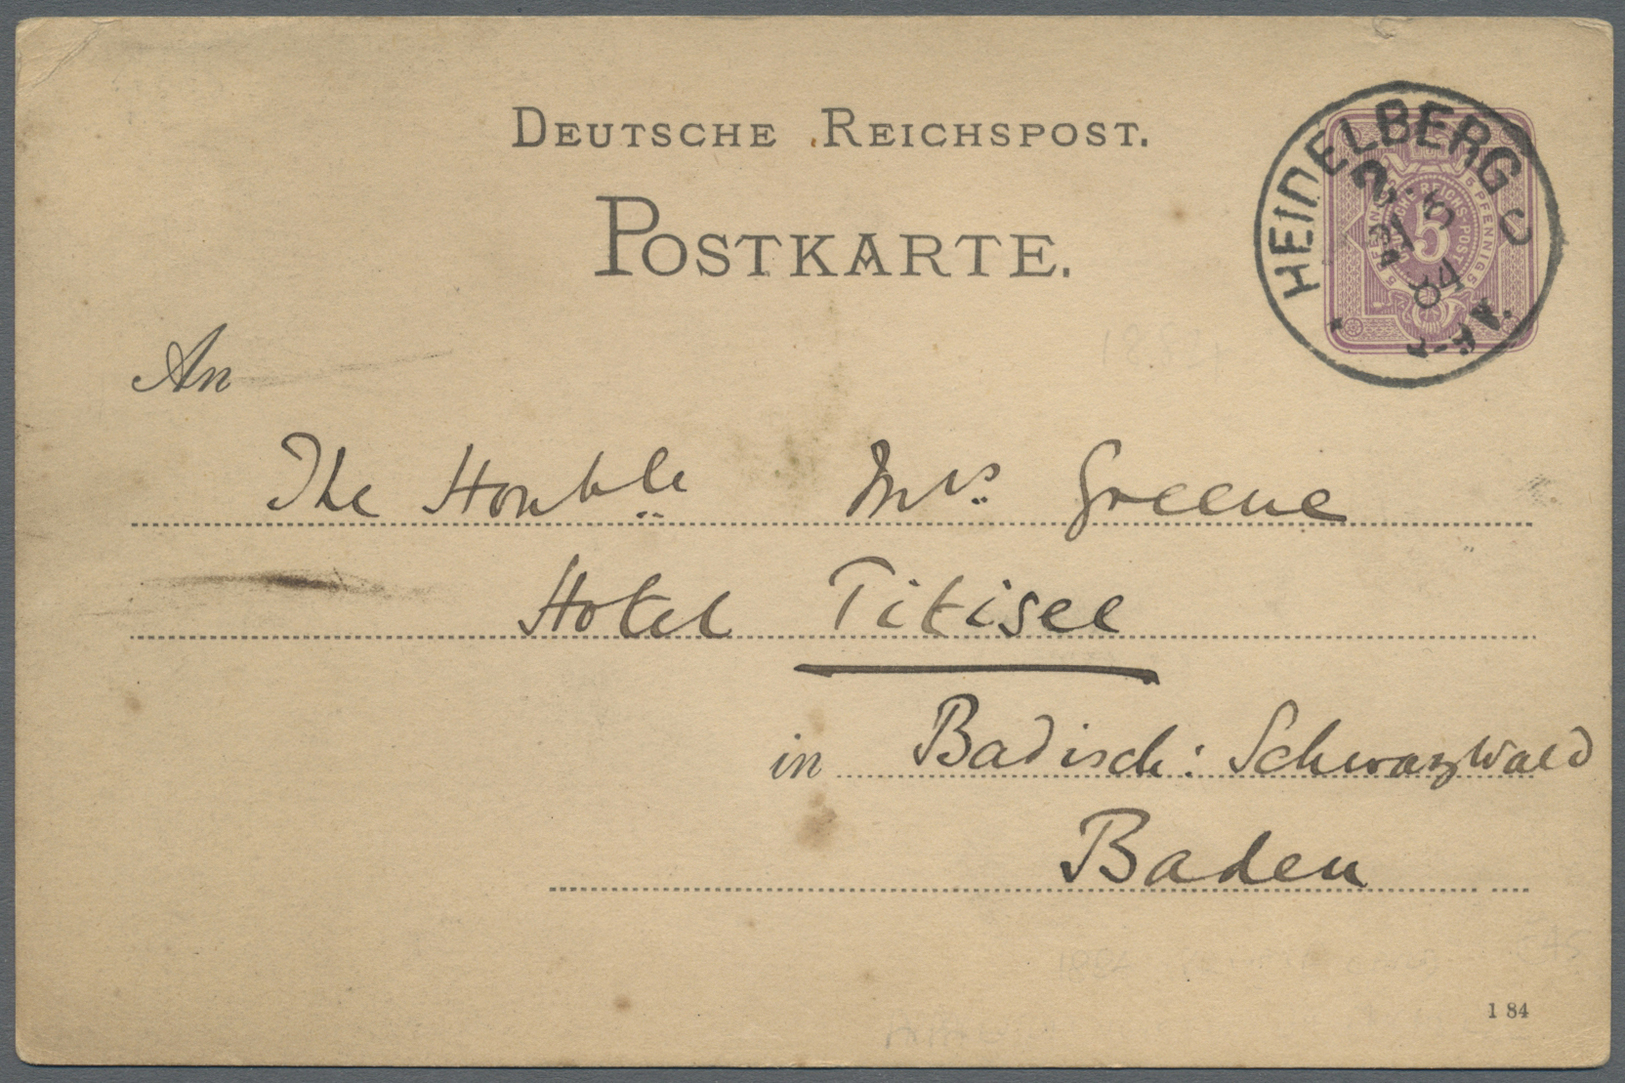 DEUTSCHE REICHSPOST.
POSTKARTE.
HEIDELBERG
5
84
5
An
The Honble Mrs Greene
Hotel Titisee
in Badisch: Schwarzwald
Baden
1 84